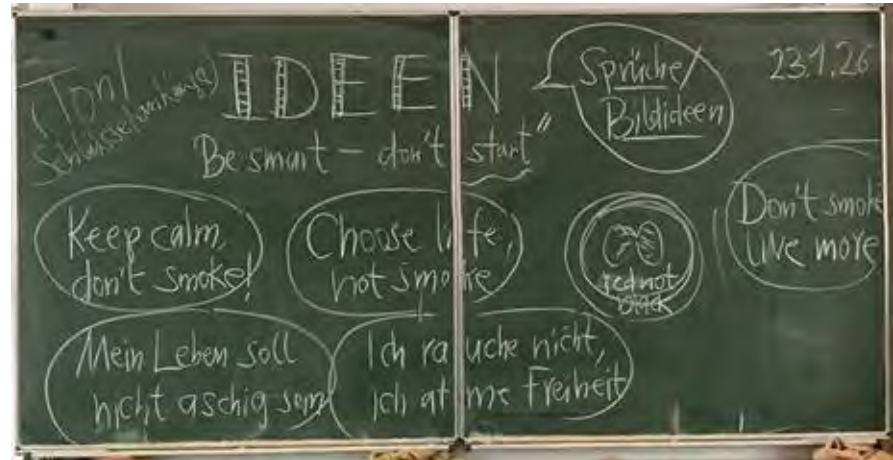 (Ton/
Schlüsselanhänger)
IDEEN
Sprüche/
Bildideen
23.1.26
"Be smart – don't start"
Keep calm,
don't smoke!
Choose life,
not smoke
red not
black
Don't smoke
live more
Mein Leben soll
nicht aschig sein
Ich rauche nicht,
ich atme Freiheit